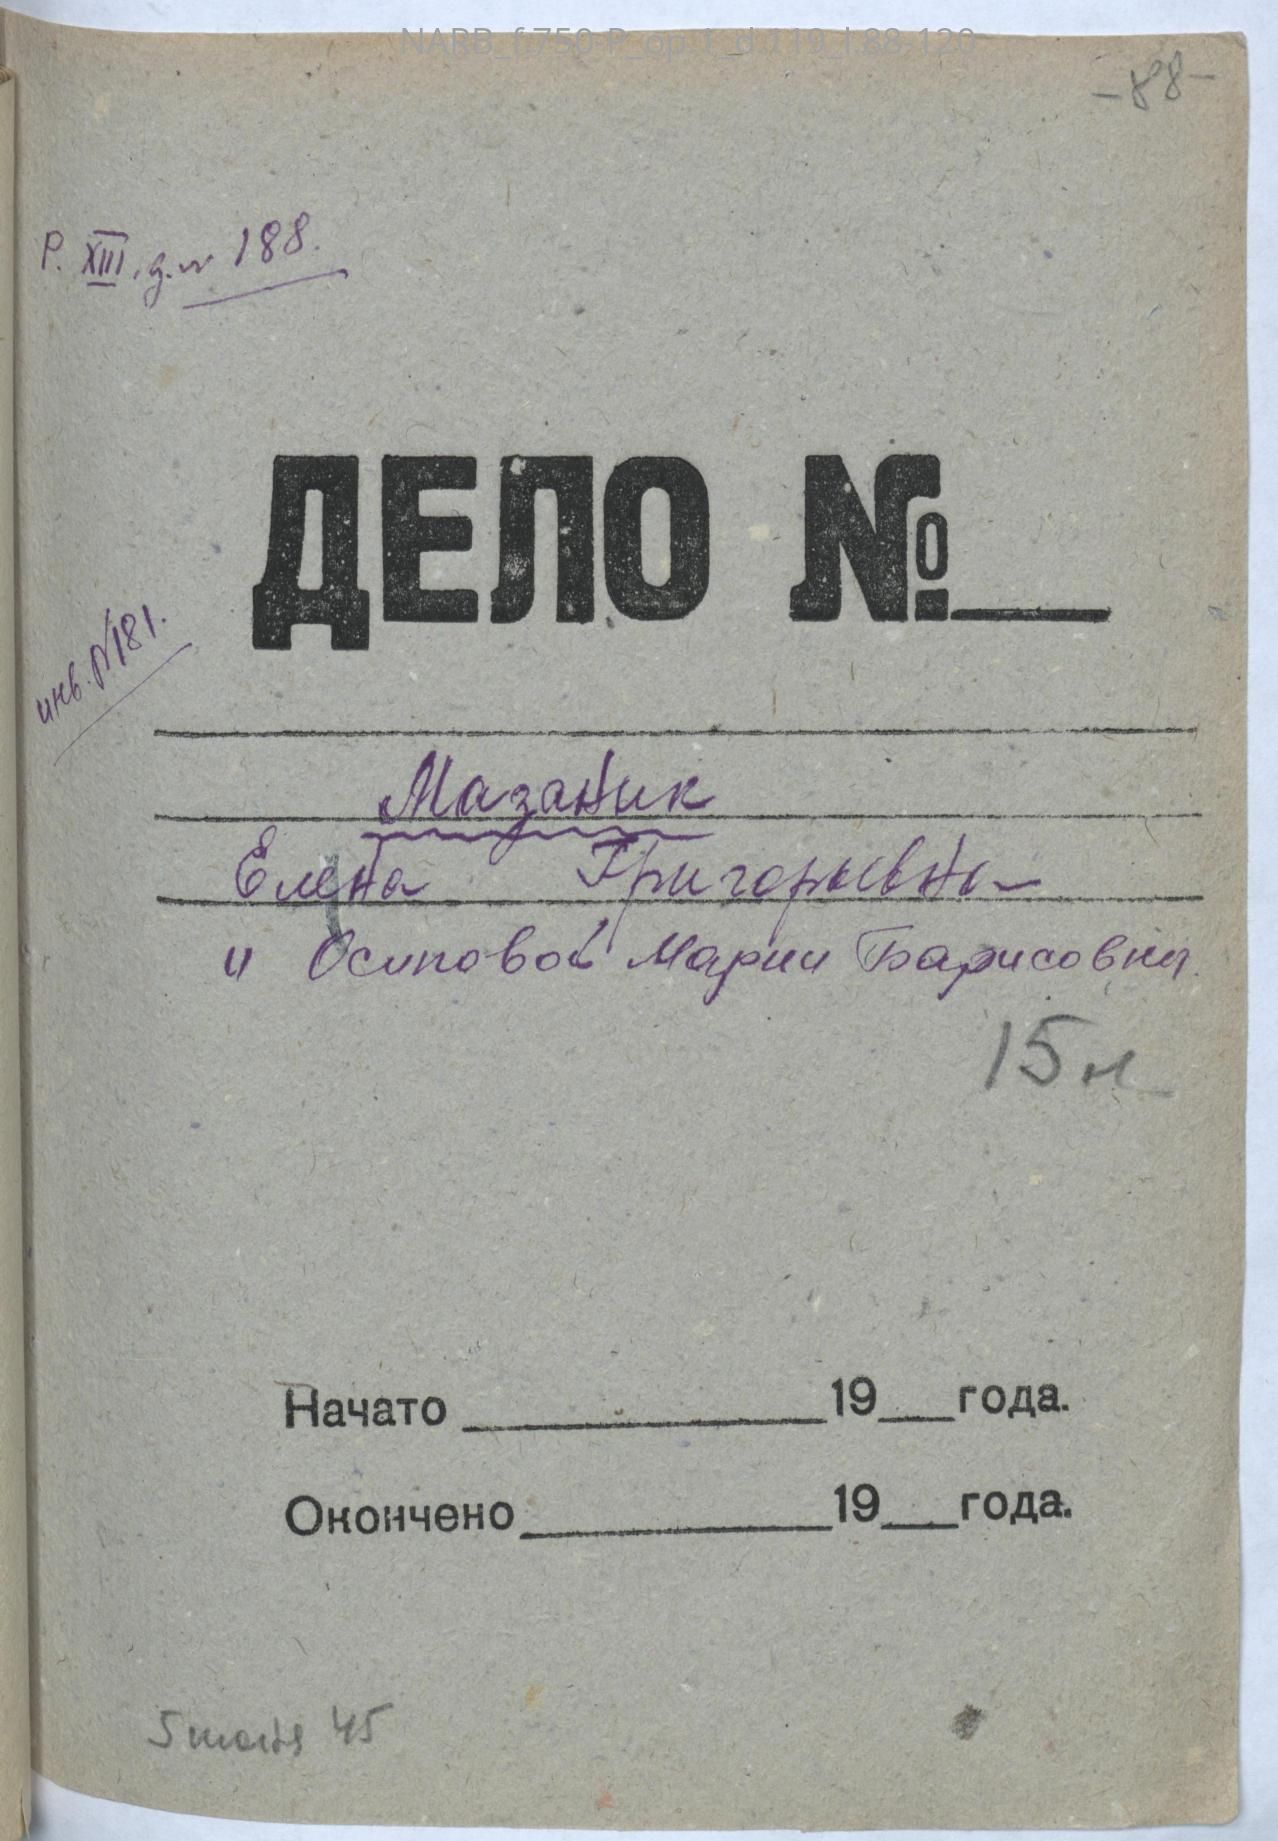 NARB_f.750-P_op.1_d.119_l.88-120
-88-
Р. XIII, д.№ 188.
ДЕЛО №
инв. №181.
Мазаник
Елена Григорьевна
и Осиповой Марии Барисовны.
15 л
Начато 19 года.
Окончено 19 года.
45